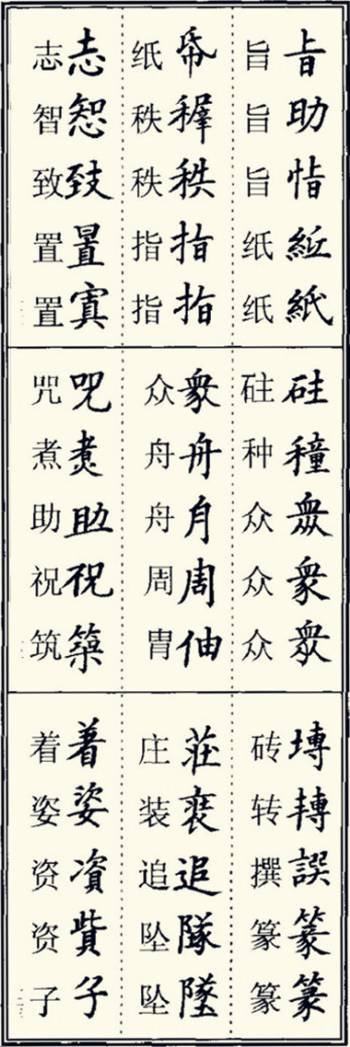 恉紙
旨旨旨纸纸
帋秩指指
纸秩秩指指
志
志智致置置
砫種眾衆衆
砫种众众众
衆舟月周伷
众舟舟周胄
呪祝築
咒煮助祝筑
塼轉篆篆
砖转撰篆篆
莊追隊墜
庄装追坠坠
着姿資貲子
着姿资资子